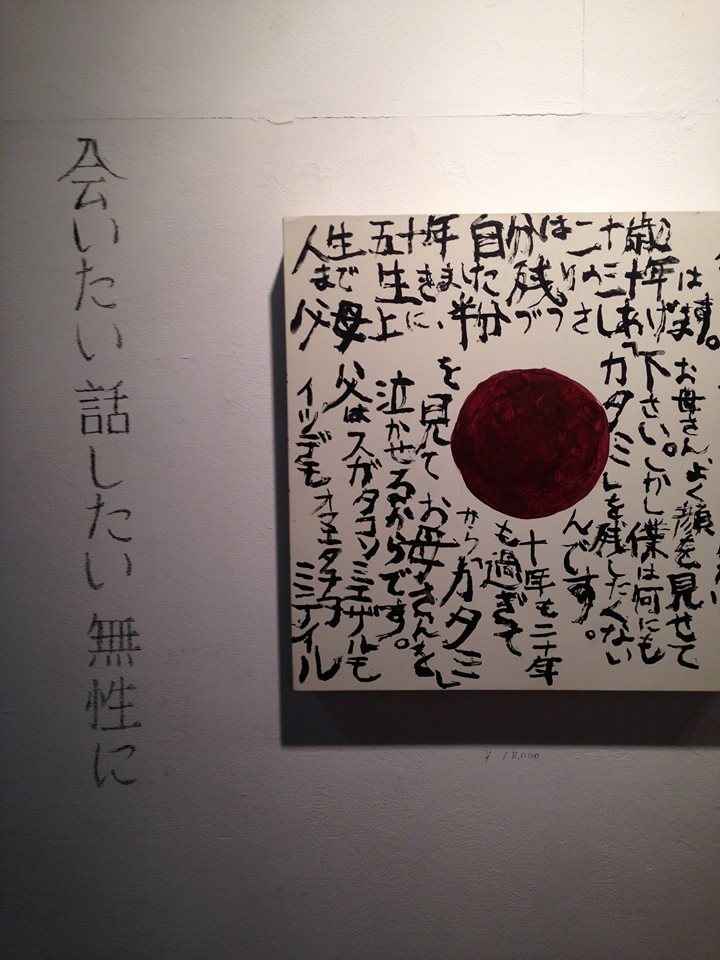 会いたい 話したい 無性に
人生五十年 自分は二十歳
まで生きました 残りの三十年は
父母上に、半分づつさしあげます。
お母さん、よく顔を見せて
下さい。しかし僕は何にも
「カタミ」を残したくない
んです。
十年も二十年
も過ぎて
から「カタミ」
を見てお母さんを
泣かせるからです。
父はスガタコソミエザルモ
イツデモオマエタチヲ ミテイル
¥ 18,000